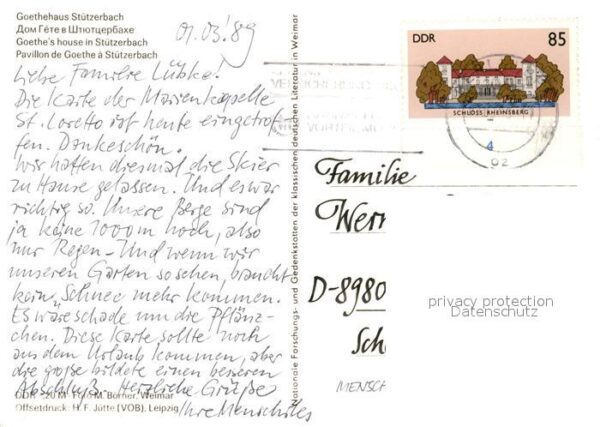 Goethehaus Stützerbach
Дом Гёте в Штютцербахе
Goethe's house in Stützerbach
Pavillon de Goethe à Stützerbach
01.03.'89
Liebe Familie Lübke!
Die Karte der Marienkapelle
St. Loretto ist heute eingetrof-
fen. Dankeschön.
Wir hatten diesmal die Skier
zu Hause gelassen. Und es war
richtig so. Unsere Berge sind
ja keine 1000 m hoch, also
nur Regen - Und wenn wir
unseren Garten so sehen, braucht
kein Schnee mehr kommen.
Es wäre schade um die Pflänz-
chen. Diese Karte sollte noch
aus dem Urlaub kommen, aber
die große bildete einen besseren
Abschluß. Herzliche Grüße
Ihre Menschiles
DDR M Foto M. Börner, Weimar
Offsetdruck: H. F. Jütte (VOB), Leipzig
Nationale Forschungs- und Gedenkstätten der klassischen deutschen Literatur in Weimar
DDR 85
SCHLOSS RHEINSBERG
Familie
Wern
D-8980
Sch
MENSCH
privacy protection
Datenschutz